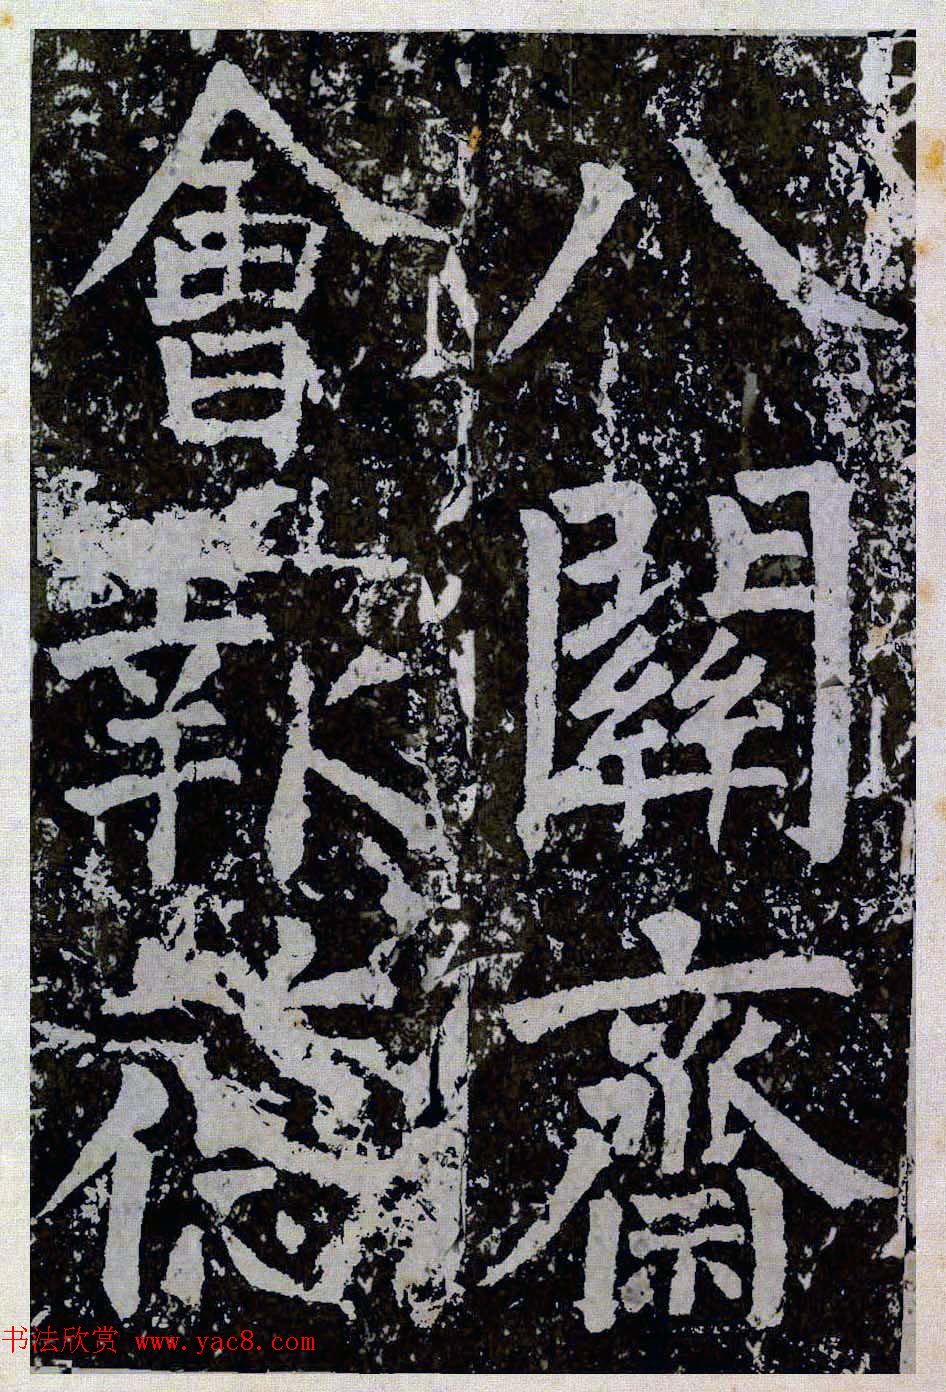 八關齋
會報德
书法欣赏 www.yac8.com